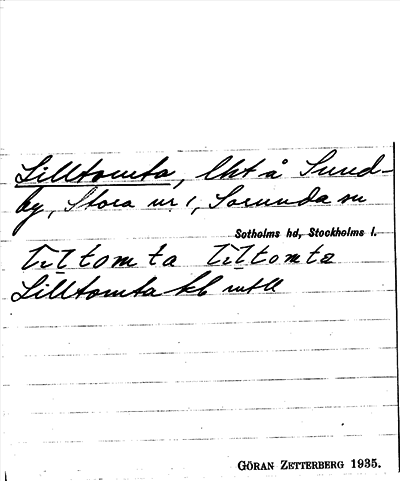 Lilltomta, lht å Sund-
by, Stora nr 1, Sorunda sn
Sotholms hd, Stockholms l.
Lilltomta kb
GÖRAN ZETTERBERG 1935.